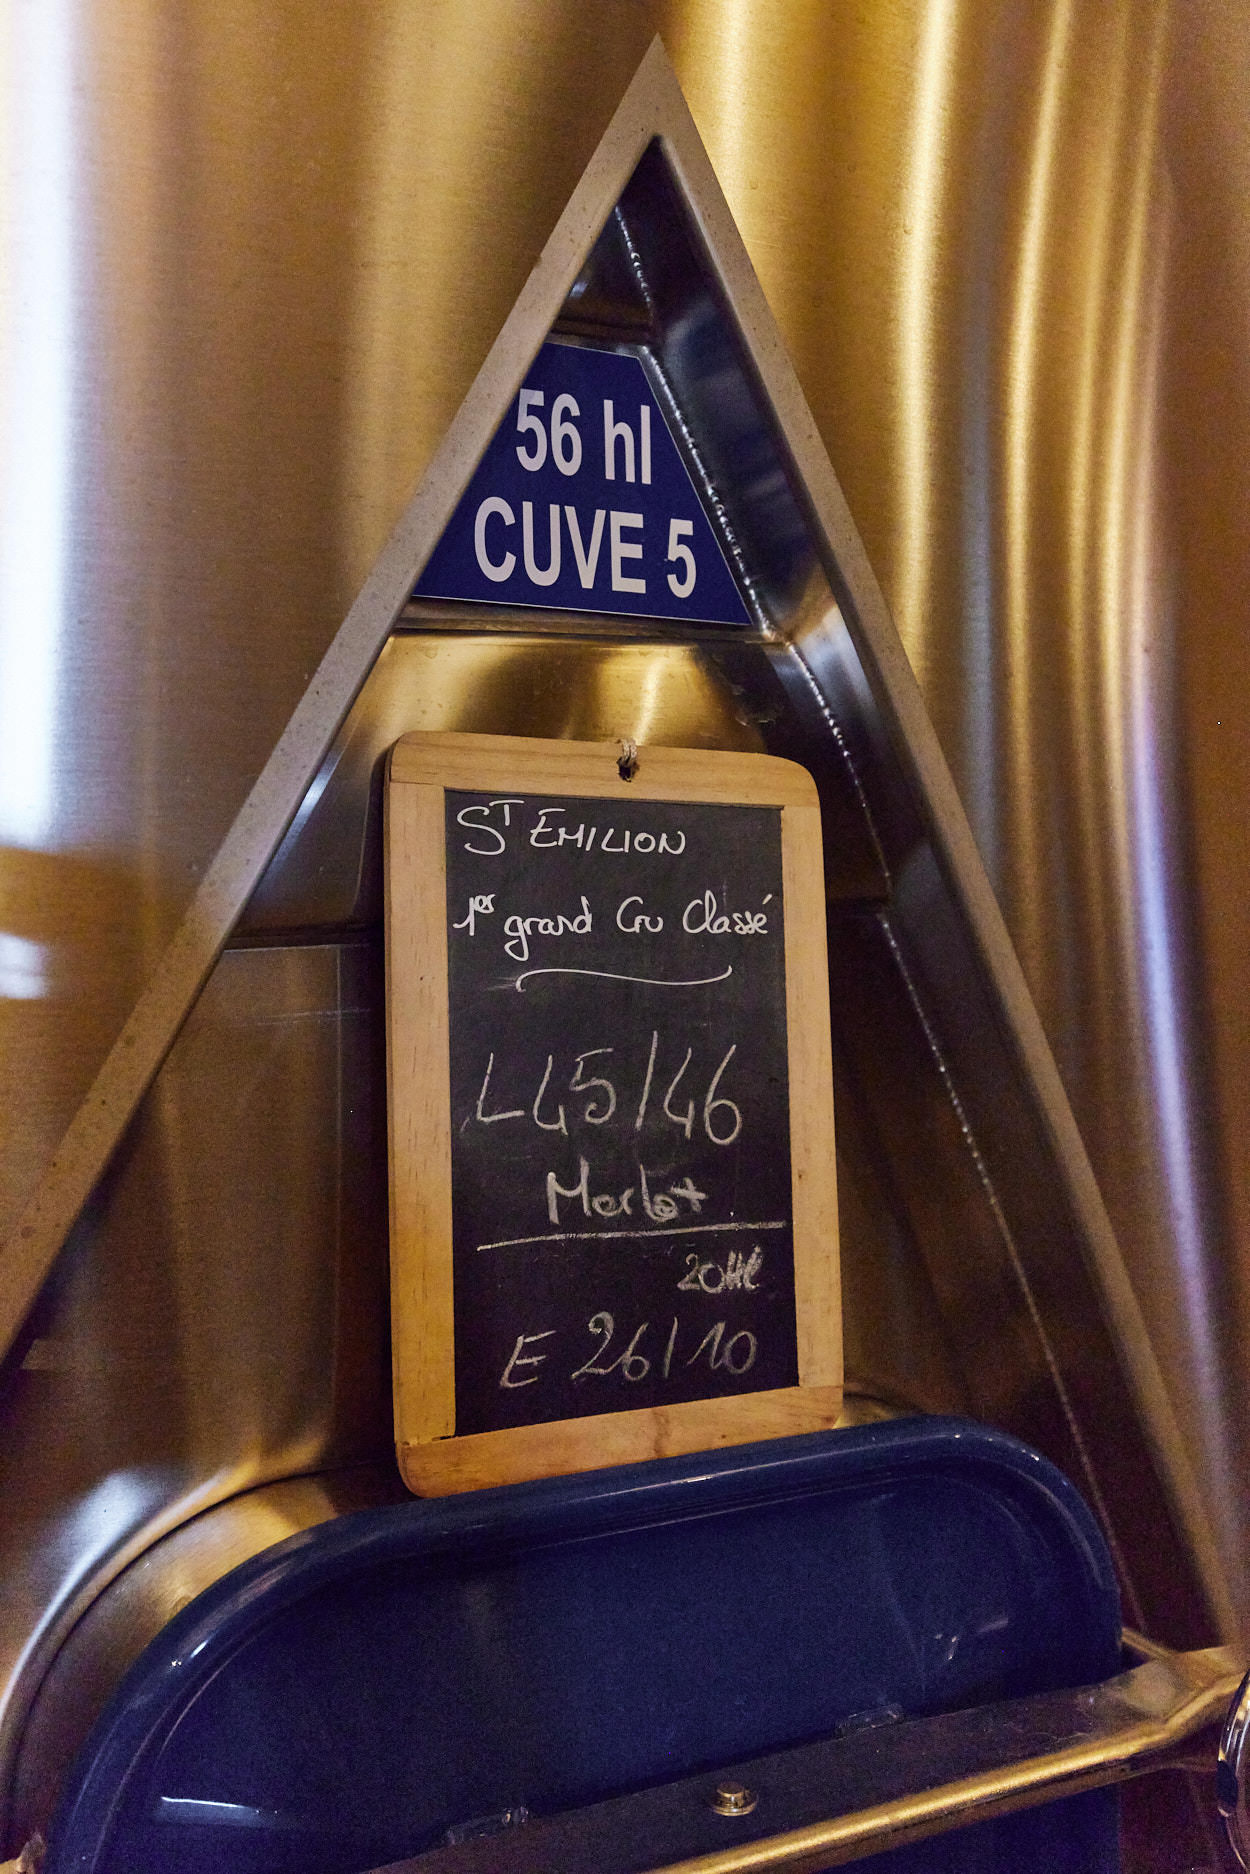 56 hl
CUVE 5
ST EMILION
1er grand Cru Classé
L45/46
Merlot
20Hl
E 26/10